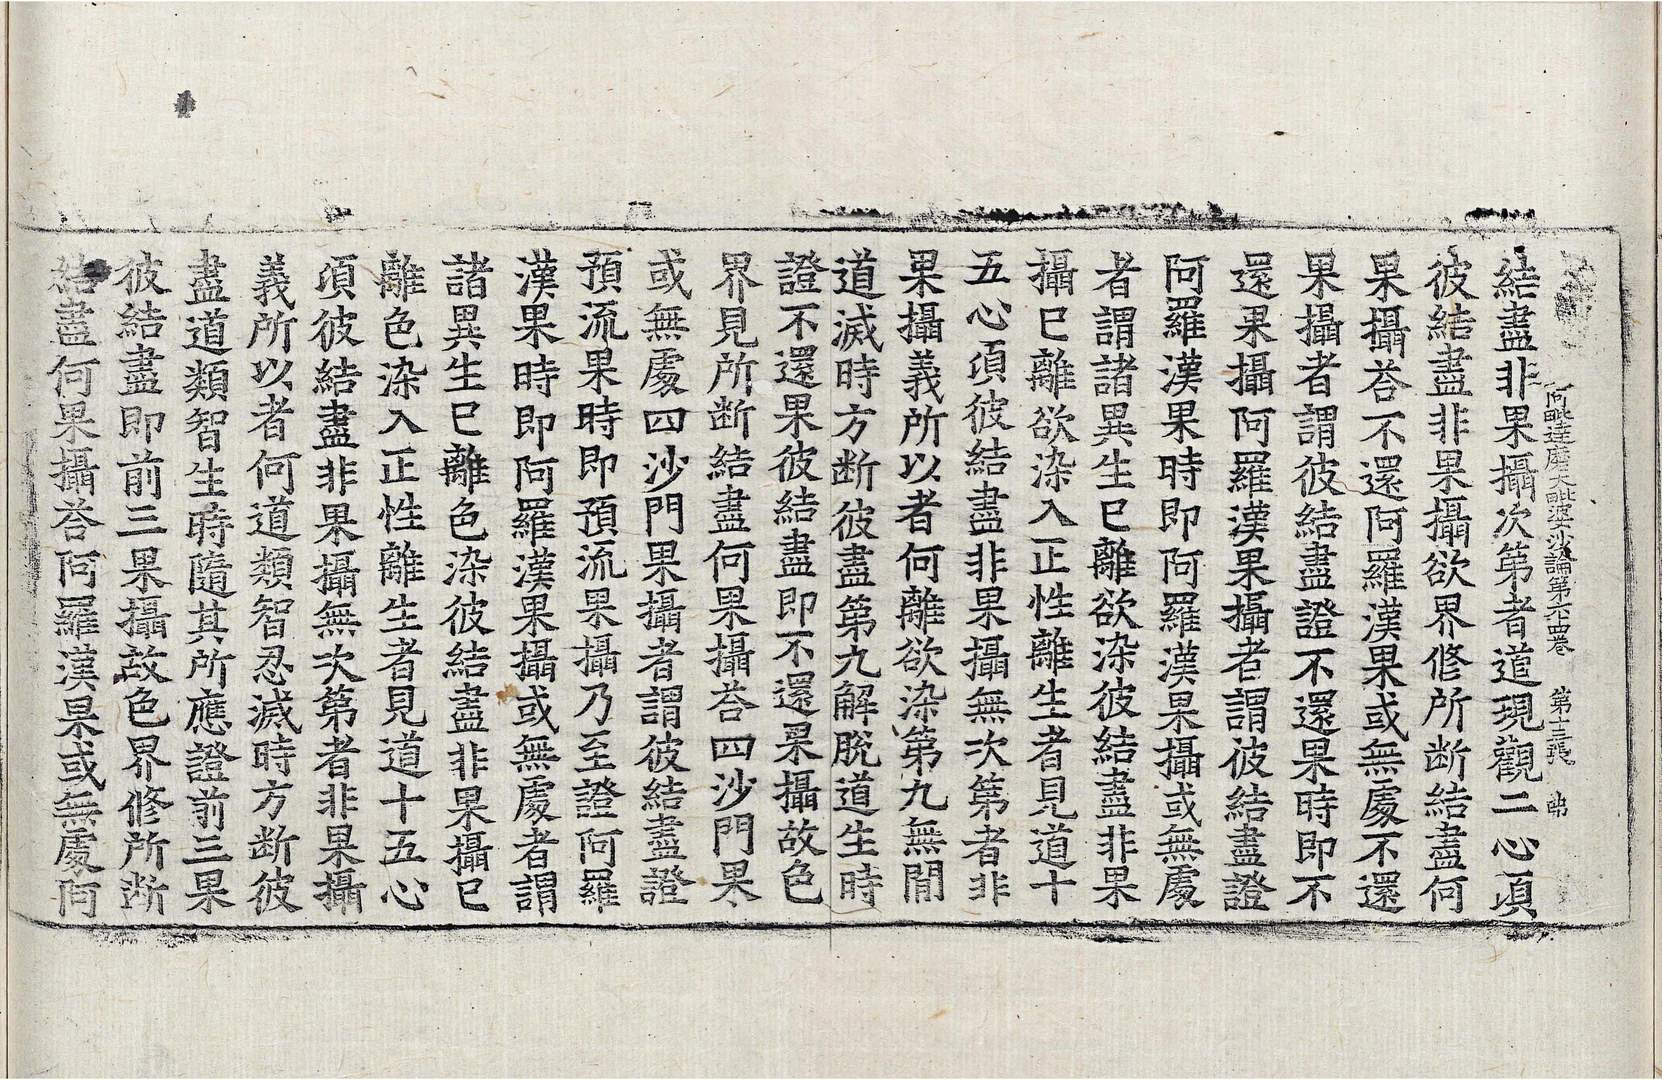 阿毗達磨大毗婆沙論第六十四卷 第十三張 弗
結盡非果攝次第者道現觀二心頃
彼結盡非果攝欲界修所断結盡何
果攝荅不還阿羅漢果或無處不還
果攝者謂彼結盡證不還果時即不
還果攝阿羅漢果攝者謂彼結盡證
阿羅漢果時即阿羅漢果攝或無處
者謂諸異生已離欲染彼結盡非果
攝已離欲染入正性離生者見道十
五心頃彼結盡非果攝無次第者非
果攝義所以者何離欲染第九無間
道滅時方断彼盡第九解脫道生時
證不還果彼結盡即不還果攝故色
界見所断結盡何果攝荅四沙門果
或無處四沙門果攝者謂彼結盡證
預流果時即預流果攝乃至證阿羅
漢果時即阿羅漢果攝或無處者謂
諸異生已離色染彼結盡非果攝已
離色染入正性離生者見道十五心
頃彼結盡非果攝無次第者非果攝
義所以者何道類智忍滅時方断彼
盡道類智生時隨其所應證前三果
彼結盡即前三果攝故色界修所断
結盡何果攝荅阿羅漢果或無處阿